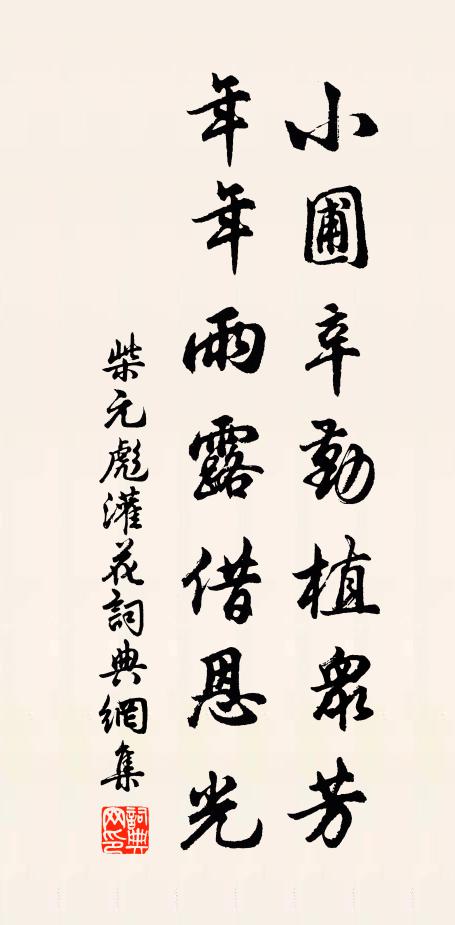 小圃辛勤植眾芳
年年雨露借恩光
柴元彪灌花詞典網集
詞典網印